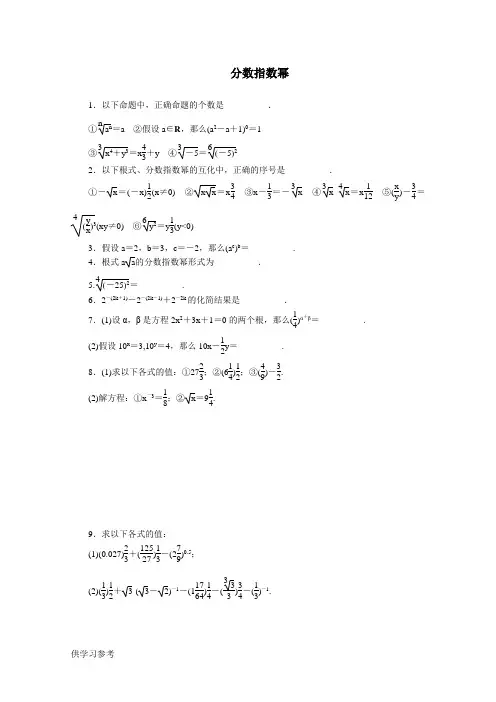 分数指数幂
1．以下命题中，正确命题的个数是__________．
①ⁿ√(aⁿ)＝a ②假设 a∈R，那么(a²－a＋1)⁰＝1
③³√(x⁴＋y³)＝x^(4/3)＋y ④³√(－5)＝⁶√((－5)²)
2．以下根式、分数指数幂的互化中，正确的序号是__________．
①－√x＝(－x)^(1/2)(x≠0) ②√(x√x)＝x^(3/4) ③x－1/3＝－³√x ④³√x·⁴√x＝x^(1/12) ⑤(x/y)－3/4＝
⁴√((y/x)³)(xy≠0) ⑥⁶√(y²)＝y^(1/3)(y<0)
3．假设 a＝2，b＝3，c＝－2，那么(aᶜ)ᵇ＝__________．
4．根式 a√a的分数指数幂形式为__________．
5.⁴√((－25)²)＝__________．
6．2^(－(2k＋1))－2^(－(2k－1))＋2^(－2k)的化简结果是__________．
7．(1)设 α，β 是方程 2x²＋3x＋1＝0 的两个根，那么(1/4)^(α＋β)＝__________．
(2)假设 10ˣ＝3,10ʸ＝4，那么 10x－1/2y＝__________．
8．(1)求以下各式的值：①27^(2/3)；②(6 1/4)^(1/2)；③(4/9)－3/2.
(2)解方程：①x⁻³＝1/8；②√x＝9^(1/4).
9．求以下各式的值：
(1)(0.027)^(2/3)＋(125/27)^(1/3)－(2 7/9)^0.5；
(2)(1/3)^(1/2)＋√3·(√3－√2)⁻¹－(1 17/64)^(1/4)－(³√3/3)^(3/4)－(1/3)⁻¹.
供学习参考